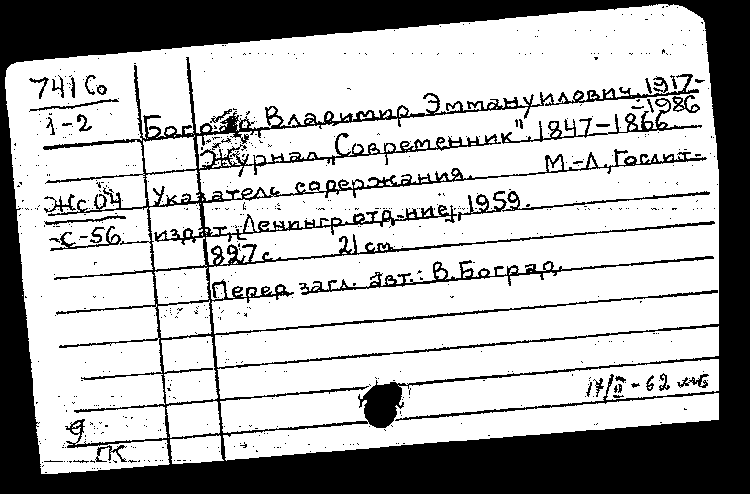 741 Со
1-2
Боград, Владимир Эммануилович. 1917-
-1986
Журнал „Современник". 1847-1866.
Жс 04
С-56
Указатель содержания. М.-Л., Гослит-
издат, [Ленингр. отд-ние], 1959.
827 с. 21 см
Перед загл. авт.: В. Боград.
17/II-62
9
ГК